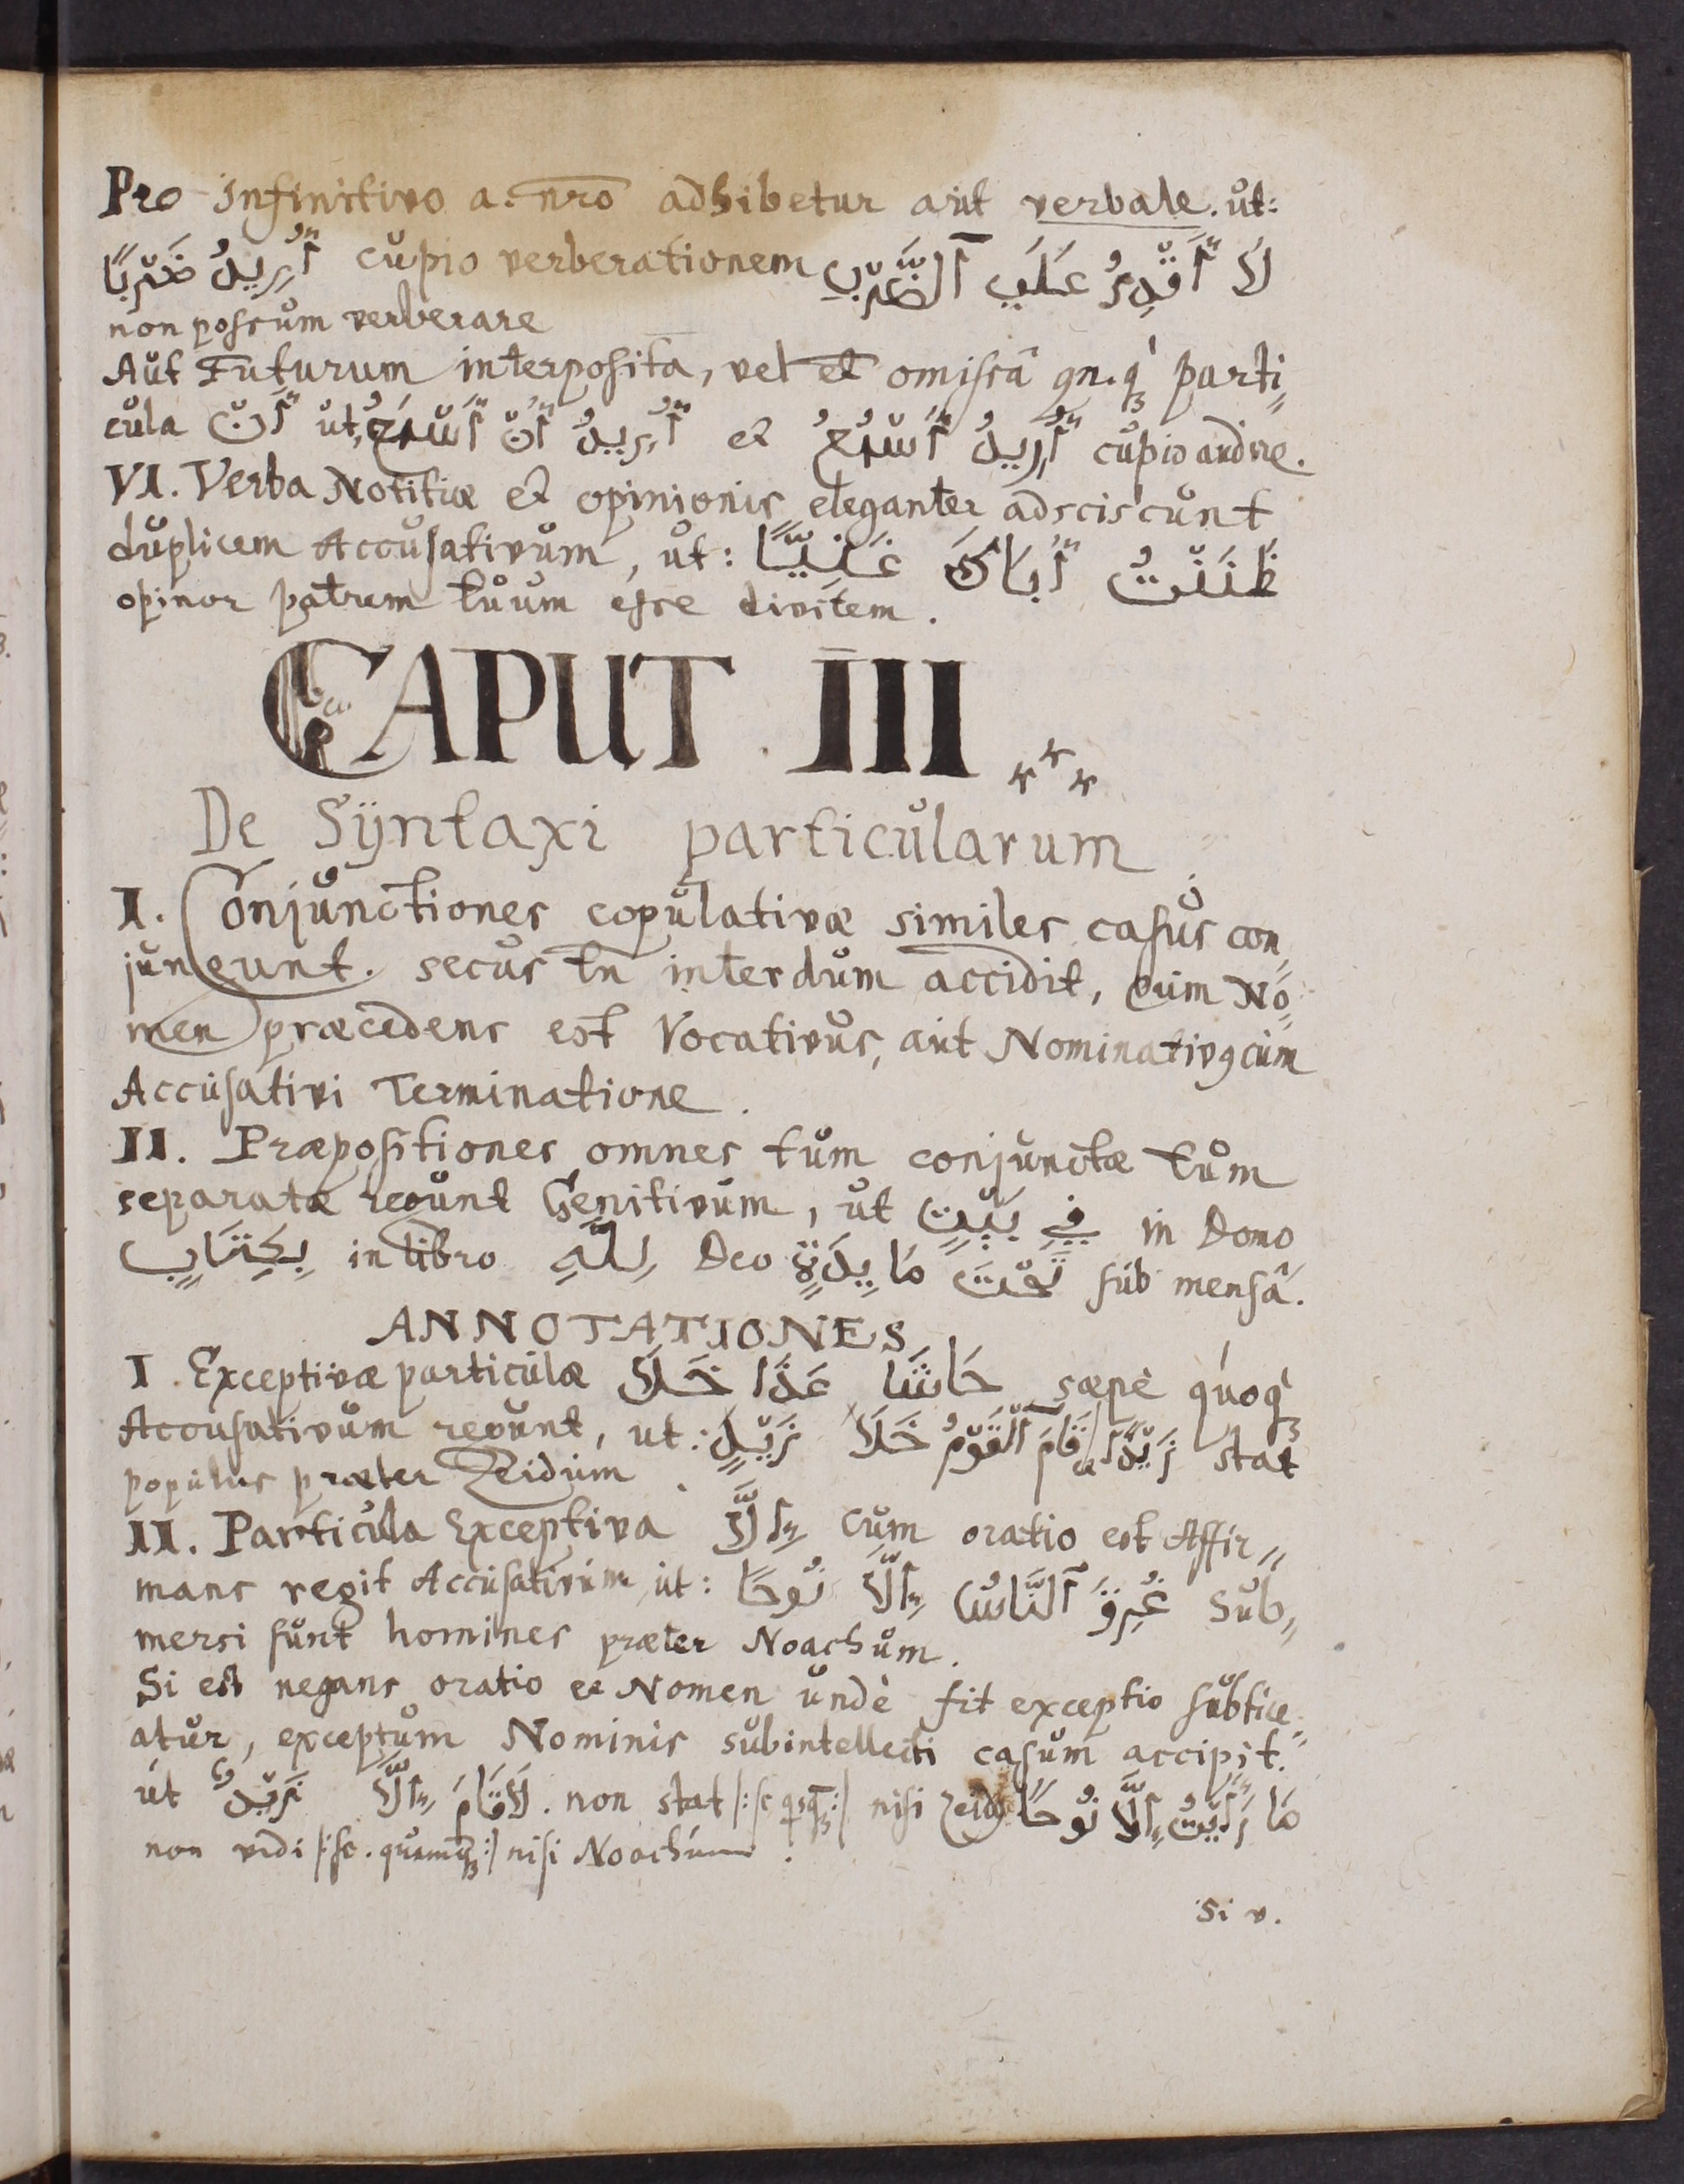 Pro Infinitivo a. nro adhibetur aut verbale. ut:
أُرِيدُ ضَرْبًا cupio verberationem لَا أَقْدِرُ عَلَي ٱلضَّرْبِ
non possum verberare
Aut Futurum interposita, vel et omissâ qn.q parti
cula أَنْ ut, أُرِيدُ أَنْ أَسْمَعُ et أُرِيدُ أَسْمَعُ cupio audire.
VI. Verba Notitiæ et opinionis eleganter adsciscunt
duplicem Accusativum, ut: ظَنَنْتُ أَبَاكَ غَنِيًّا
opinor patrum tuum esse divitem.
CAPUT III
De Sÿntaxi particularum
I. Conjunctiones copulativæ similes casus con
jungunt. secus tn interdum accidit, cum No
men præcedens est Vocativus, aut Nominativ9 cum
Accusativi Terminatione.
II. Præpositiones omnes tum conjunctæ tum
separatæ regunt Genitivum, ut فِي بَيْتٍ in Domo
بِكِتَابٍ in libro لِلَّهِ Deo تَحْتَ مَايِدَةٍ sub mensâ.
ANNOTATIONES
I. Exceptivæ particulæ حَاشَا عَدَا خَلَا sæpè quoq
Accusativum regunt, ut: قَامَ ٱلْقَوْمُ خَلَا زَيْدٍ زَيْدًا stat
populus præter Zeidum.
II. Particula Exceptiva إِلَّا Cum oratio est Affir
mans regit Accusativum, ut: غُرِقَ ٱلنَّاسُ إِلَّا نُوحًا Sub
mersi sunt homines præter Noachum.
Si est negans oratio et Nomen undè fit exceptio subtice
atur, exceptum Nominis subintellecti casum accipit.
ut لَاقَامَ إِلَّا زَيْدٌ. non stat |:sc qsq:| nisi Zeid9 مَا رَأَيْتُ إِلَّا نُوحًا
non vidi |:sc. quemq:| nisi Noachum.
Si v.